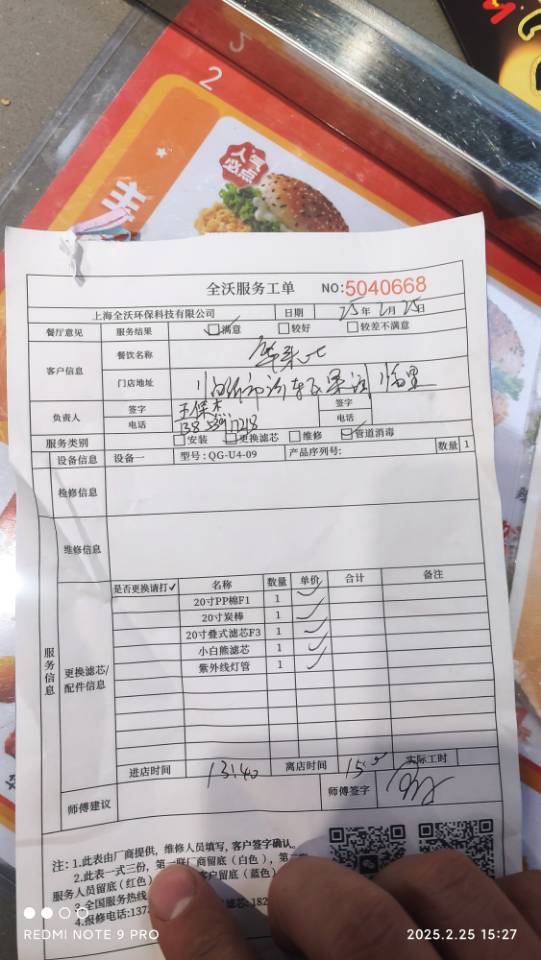 S
2
人气
必点
全沃服务工单 NO:5040668
上海全沃环保科技有限公司 日期 25年2月25日
餐厅意见 服务结果 满意 较好 较差不满意
客户信息 餐饮名称 华莱士
门店地址
负责人 签字 王保杰 签字
电话 电话
服务类别 安装 更换滤芯 维修 管道消毒
设备信息 设备一 型号:QG-U4-09 产品序列号: 数量 1
检修信息
维修信息
服务信息
更换滤芯/配件信息
是否更换请打✓ 名称 数量 单价 合计 备注
20寸PP棉F1 1
20寸炭棒 1
20寸叠式滤芯F3 1
小白熊滤芯 1
紫外线灯管 1
进店时间 13:40 离店时间 实际工时
师傅建议 师傅签字
注:1.此表由厂商提供,维修人员填写,客户签字确认。
2.此表一式三份,第一联厂商留底(白色),第二
服务人员留底(红色) 客户留底(蓝色)
3.全国服务热线
4.报修电话:137 滤芯:182
REDMI NOTE 9 PRO
2025.2.25 15:27